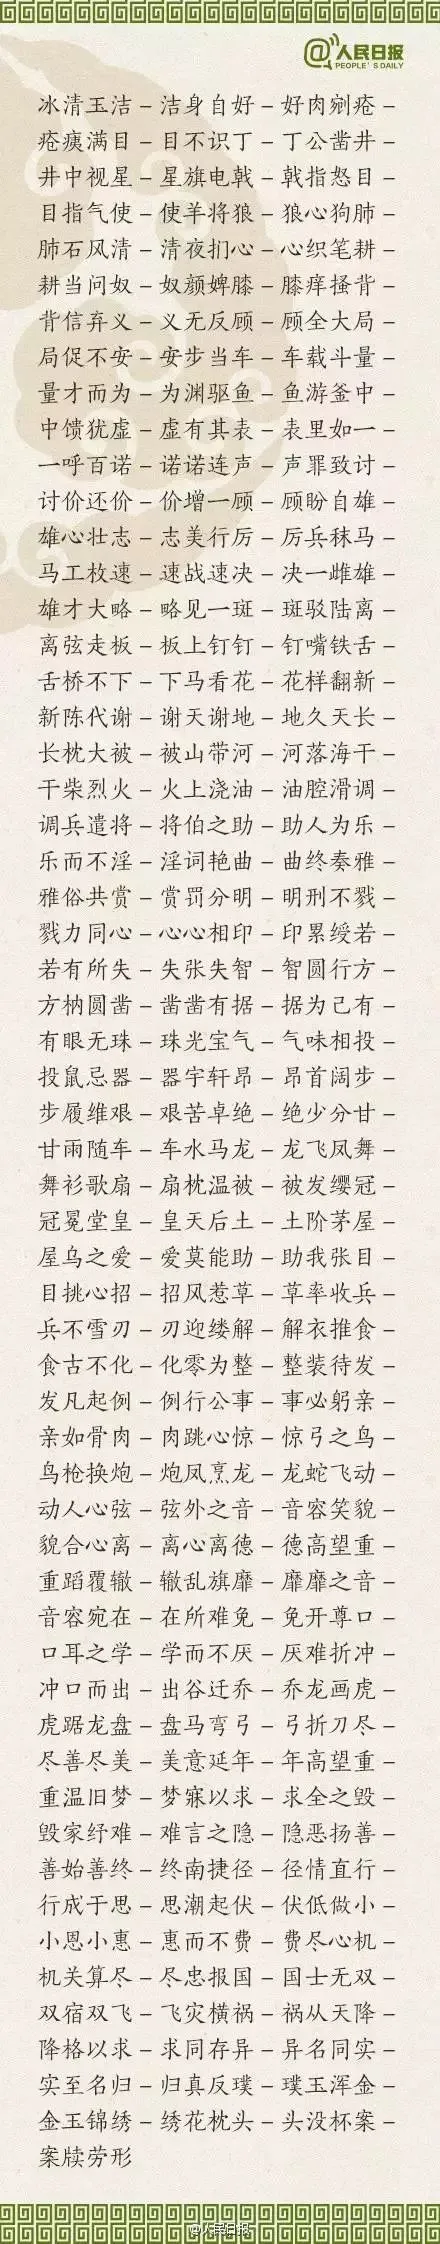 @人民日报
PEOPLE'S DAILY
冰清玉洁–洁身自好–好肉剜疮–
疮痍满目–目不识丁–丁公凿井–
井中视星–星旗电戟–戟指怒目–
目指气使–使羊将狼–狼心狗肺–
肺石风清–清夜扪心–心织笔耕–
耕当问奴–奴颜婢膝–膝痒搔背–
背信弃义–义无反顾–顾全大局–
局促不安–安步当车–车载斗量–
量才而为–为渊驱鱼–鱼游釜中–
中馈犹虚–虚有其表–表里如一–
一呼百诺–诺诺连声–声罪致讨–
讨价还价–价增一顾–顾盼自雄–
雄心壮志–志美行厉–厉兵秣马–
马工枚速–速战速决–决一雌雄–
雄才大略–略见一斑–斑驳陆离–
离弦走板–板上钉钉–钉嘴铁舌–
舌桥不下–下马看花–花样翻新–
新陈代谢–谢天谢地–地久天长–
长枕大被–被山带河–河落海干–
干柴烈火–火上浇油–油腔滑调–
调兵遣将–将伯之助–助人为乐–
乐而不淫–淫词艳曲–曲终奏雅–
雅俗共赏–赏罚分明–明刑不戮–
戮力同心–心心相印–印累绶若–
若有所失–失张失智–智圆行方–
方枘圆凿–凿凿有据–据为己有–
有眼无珠–珠光宝气–气味相投–
投鼠忌器–器宇轩昂–昂首阔步–
步履维艰–艰苦卓绝–绝少分甘–
甘雨随车–车水马龙–龙飞凤舞–
舞衫歌扇–扇枕温被–被发缨冠–
冠冕堂皇–皇天后土–土阶茅屋–
屋乌之爱–爱莫能助–助我张目–
目挑心招–招风惹草–草率收兵–
兵不雪刃–刃迎缕解–解衣推食–
食古不化–化零为整–整装待发–
发凡起例–例行公事–事必躬亲–
亲如骨肉–肉跳心惊–惊弓之鸟–
鸟枪换炮–炮凤烹龙–龙蛇飞动–
动人心弦–弦外之音–音容笑貌–
貌合心离–离心离德–德高望重–
重蹈覆辙–辙乱旗靡–靡靡之音–
音容宛在–在所难免–免开尊口–
口耳之学–学而不厌–厌难折冲–
冲口而出–出谷迁乔–乔龙画虎–
虎踞龙盘–盘马弯弓–弓折刀尽–
尽善尽美–美意延年–年高望重–
重温旧梦–梦寐以求–求全之毁–
毁家纾难–难言之隐–隐恶扬善–
善始善终–终南捷径–径情直行–
行成于思–思潮起伏–伏低做小–
小恩小惠–惠而不费–费尽心机–
机关算尽–尽忠报国–国士无双–
双宿双飞–飞灾横祸–祸从天降–
降格以求–求同存异–异名同实–
实至名归–归真反璞–璞玉浑金–
金玉锦绣–绣花枕头–头没杯案–
案牍劳形
@人民日报